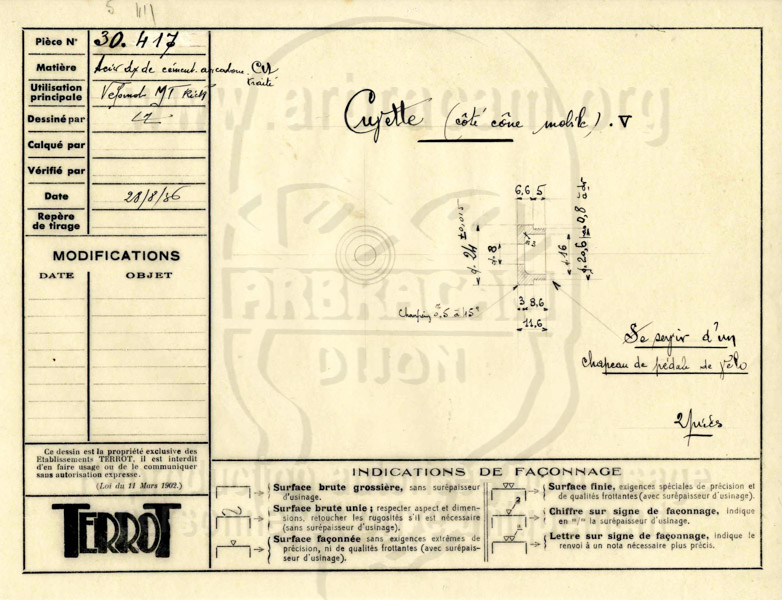 Pièce N° 30.417
Matière Acier dx de cément. au carbone. CVI
traité
Utilisation
principale Vélomot MT
Dessiné par
Calqué par
Vérifié par
Date 28/8/36
Repère
de tirage
MODIFICATIONS
DATE OBJET
Cuvette (côté cône mobile). ∇
6,6 5
ø. 24 ±0,015
ø. 8
ø. 16
ø. 20,6
3 8,6
11,6
Chanfrein 0,5 à 45°
Se servir d'un
chapeau de pédale de vélo
2 pièces
Ce dessin est la propriété exclusive des
Etablissements TERROT, il est interdit
d'en faire usage ou de le communiquer
sans autorisation expresse.
(Loi du 11 Mars 1902.)
TERROT
INDICATIONS DE FAÇONNAGE
Surface brute grossière, sans surépaisseur
d'usinage.
Surface brute unie ; respecter aspect et dimen-
sions, retoucher les rugosités s'il est nécessaire
(sans surépaisseur d'usinage).
Surface façonnée sans exigences extrêmes de
précision, ni de qualités frottantes (avec surépais-
seur d'usinage).
Surface finie, exigences spéciales de précision et
de qualités frottantes (avec surépaisseur d'usinage).
Chiffre sur signe de façonnage, indique
en m/m la surépaisseur d'usinage.
Lettre sur signe de façonnage, indique le
renvoi à un nota nécessaire plus précis.
www.arbracam.org
ARBRACAM
DIJON